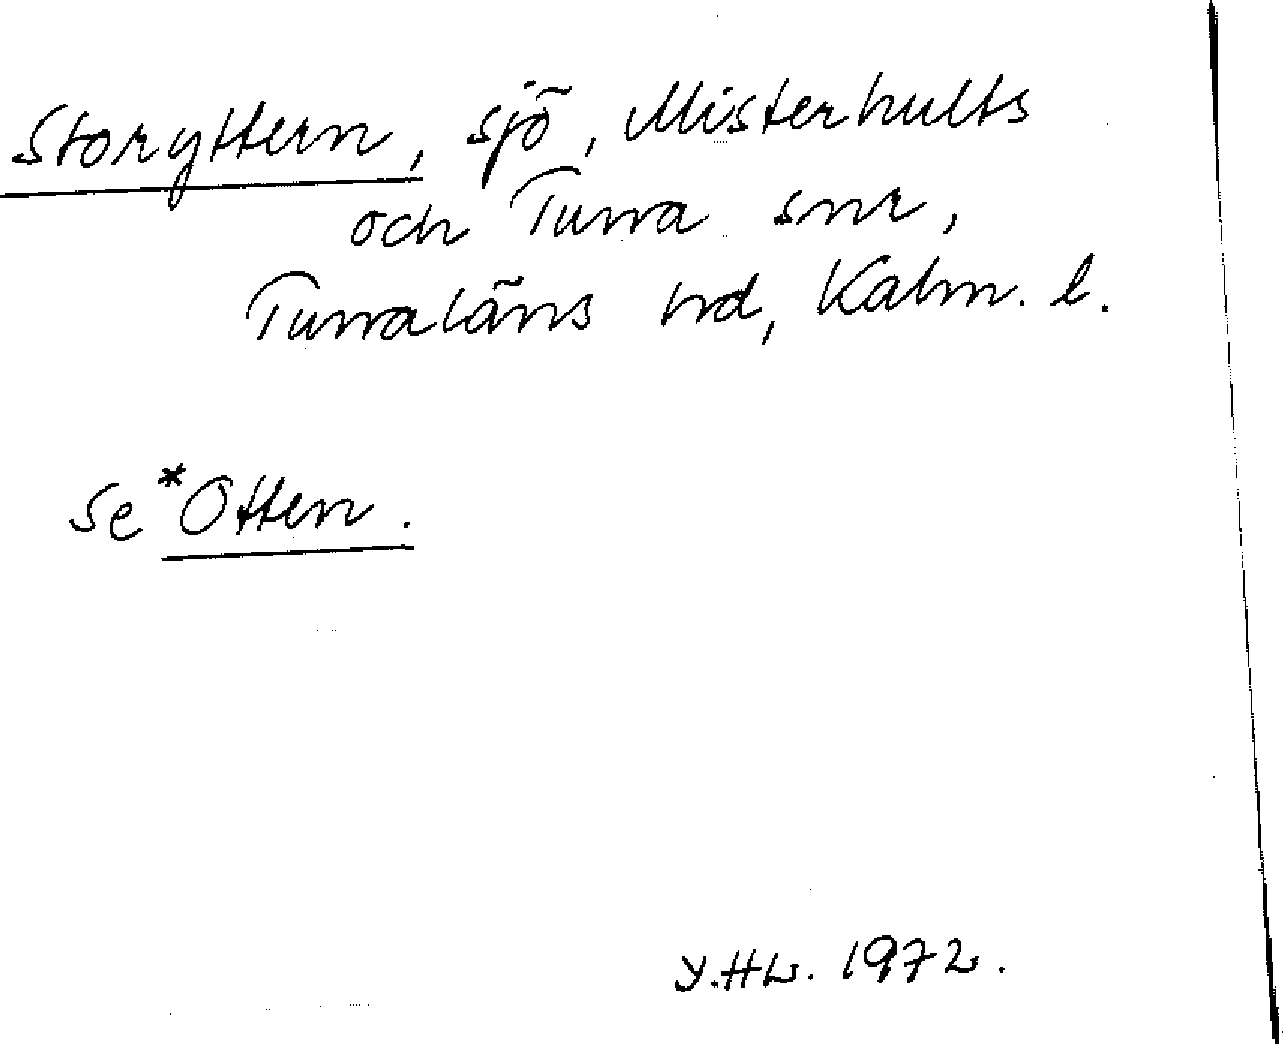 Storyttern, sjö, Misterhults
och Tunna snr,
Tunaläns hd, Kalm. l.
Se *Otten.
Y.HL. 1972.